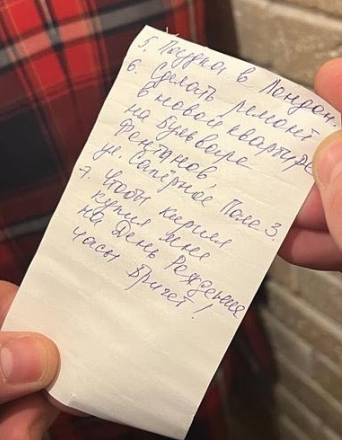 5. Поездка в Лондон.
6. Сделать ремонт
в новой квартире
на Бульваре
Фонтанов,
ул. Сапёрное Поле 3.
7. Чтобы Кирилл
купил мне
на День Рождения
часы Бригет!